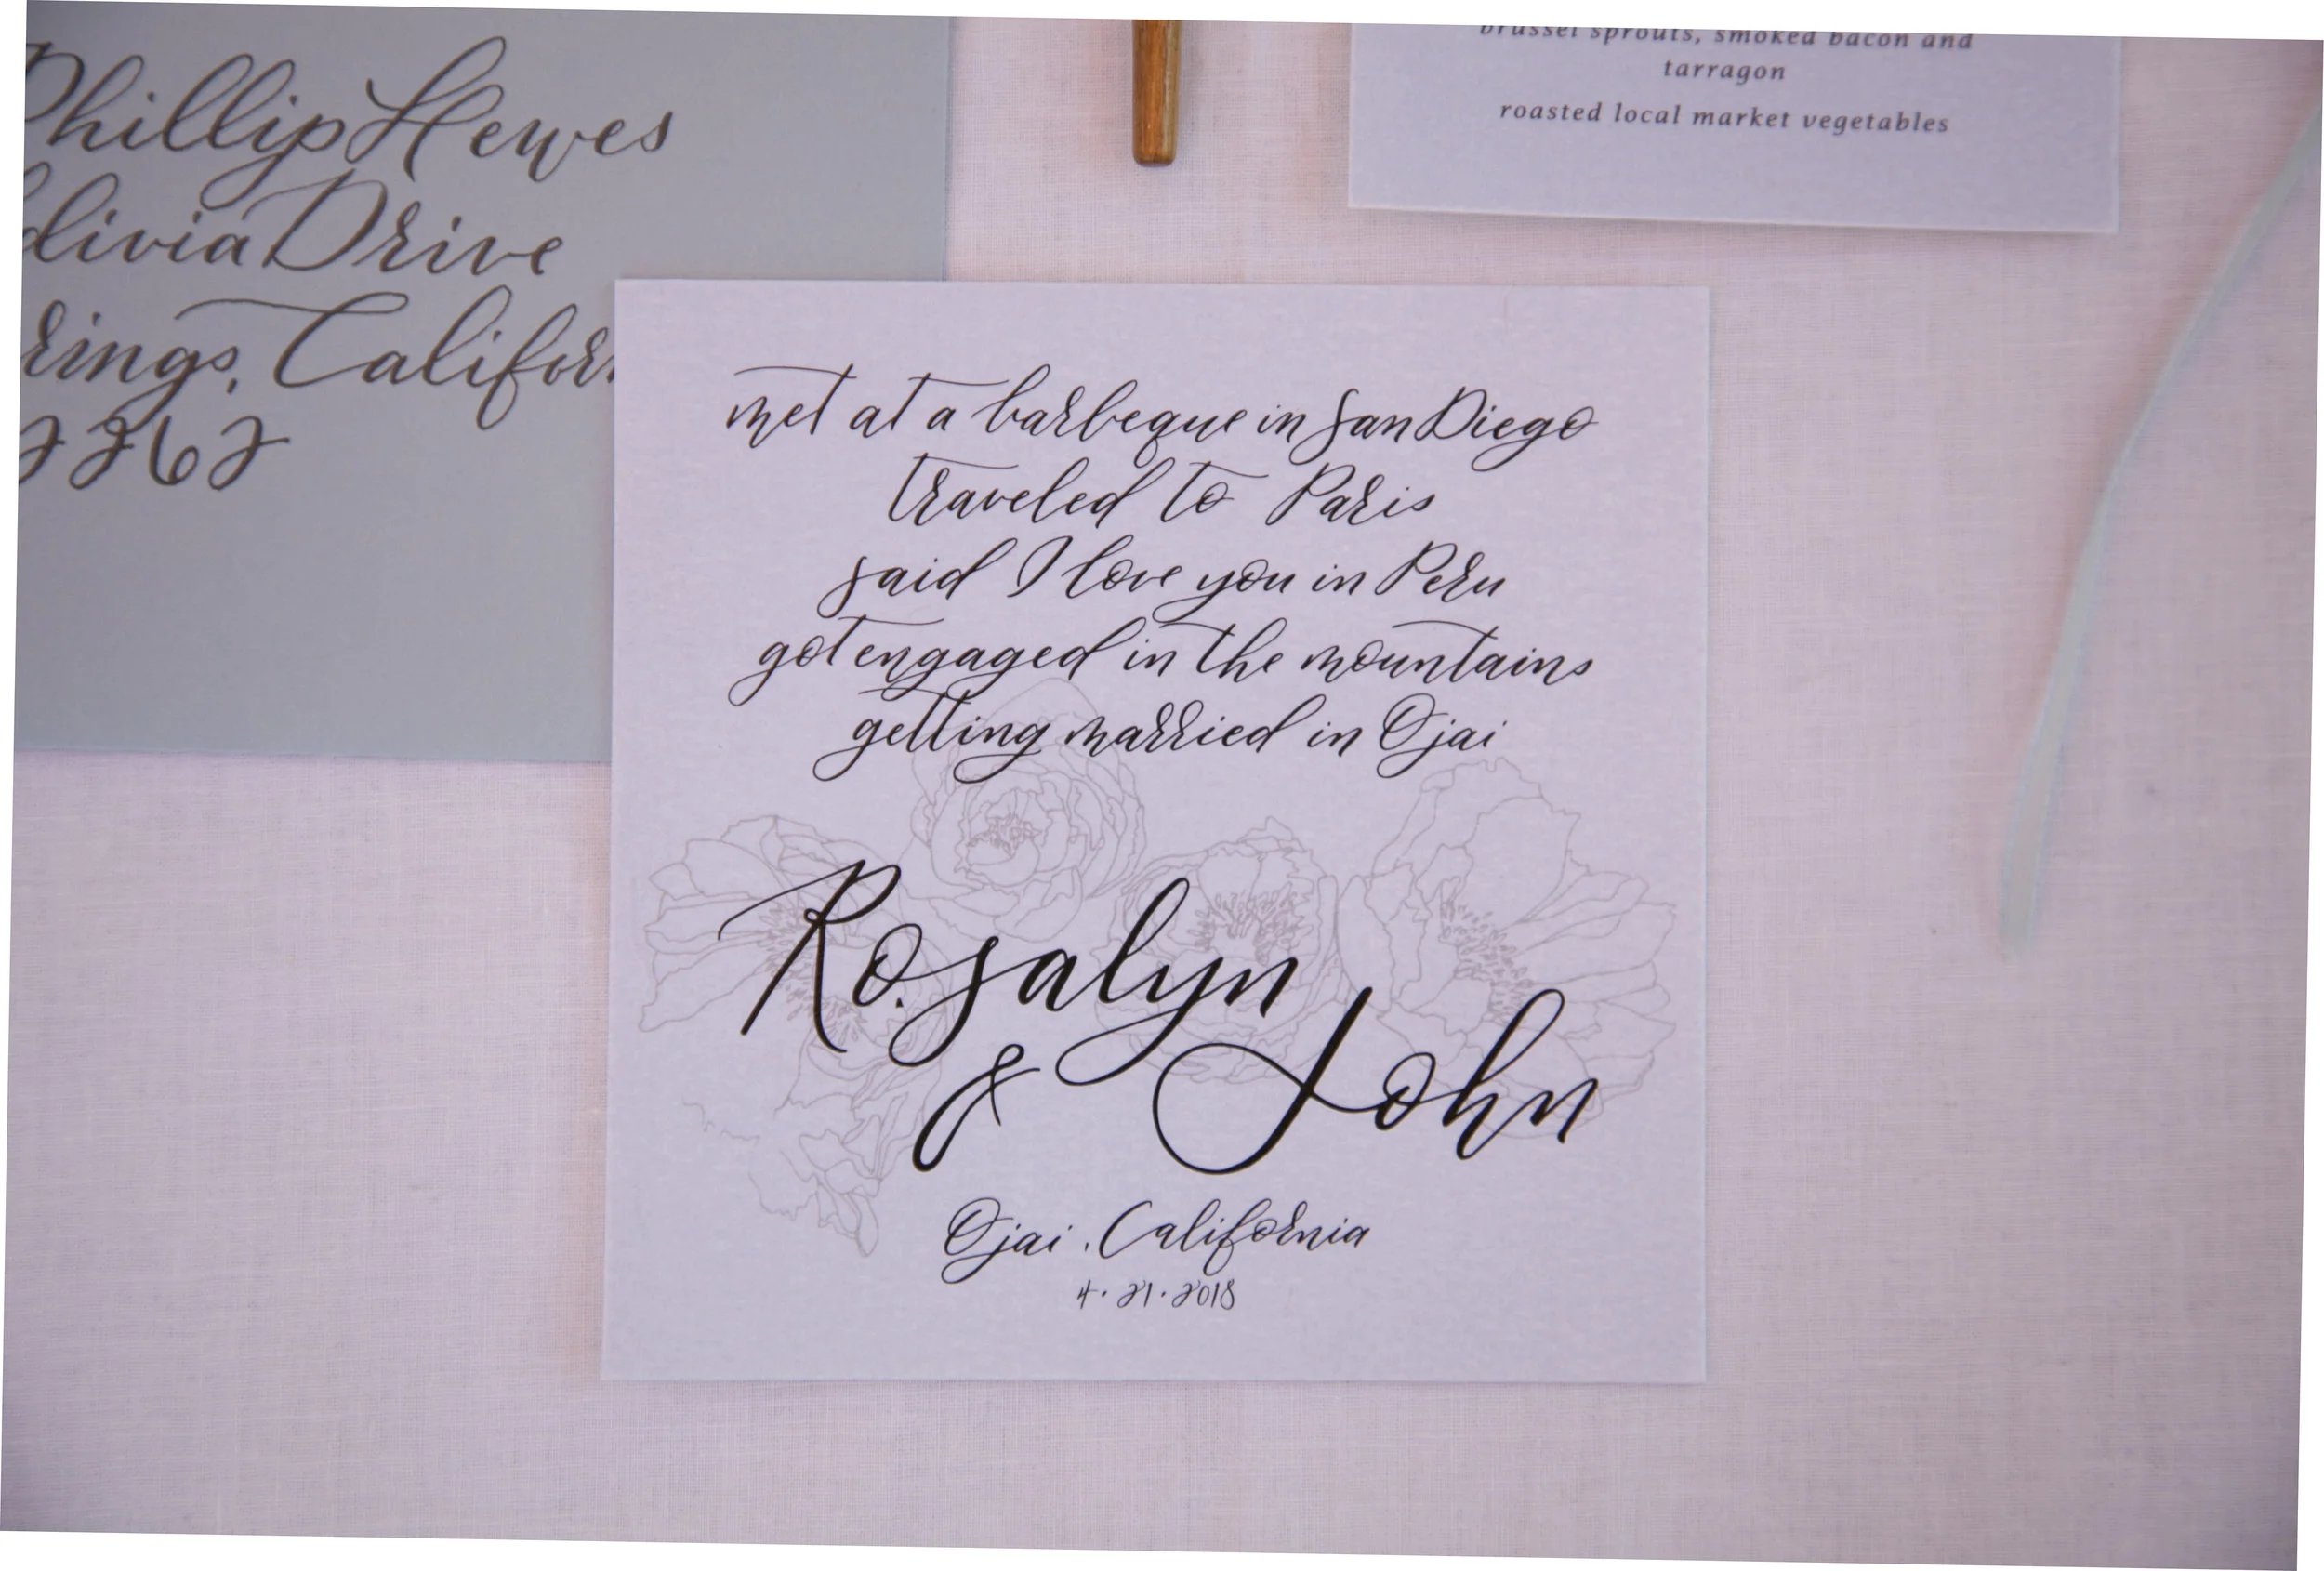 Phillip Hewes
Drive
Califor
2262
brussel sprouts, smoked bacon and
tarragon
roasted local market vegetables
met at a barbeque in San Diego
traveled to Paris
said I love you in Peru
got engaged in the mountains
getting married in Ojai
Rosalyn
& John
Ojai, California
4.21.2018